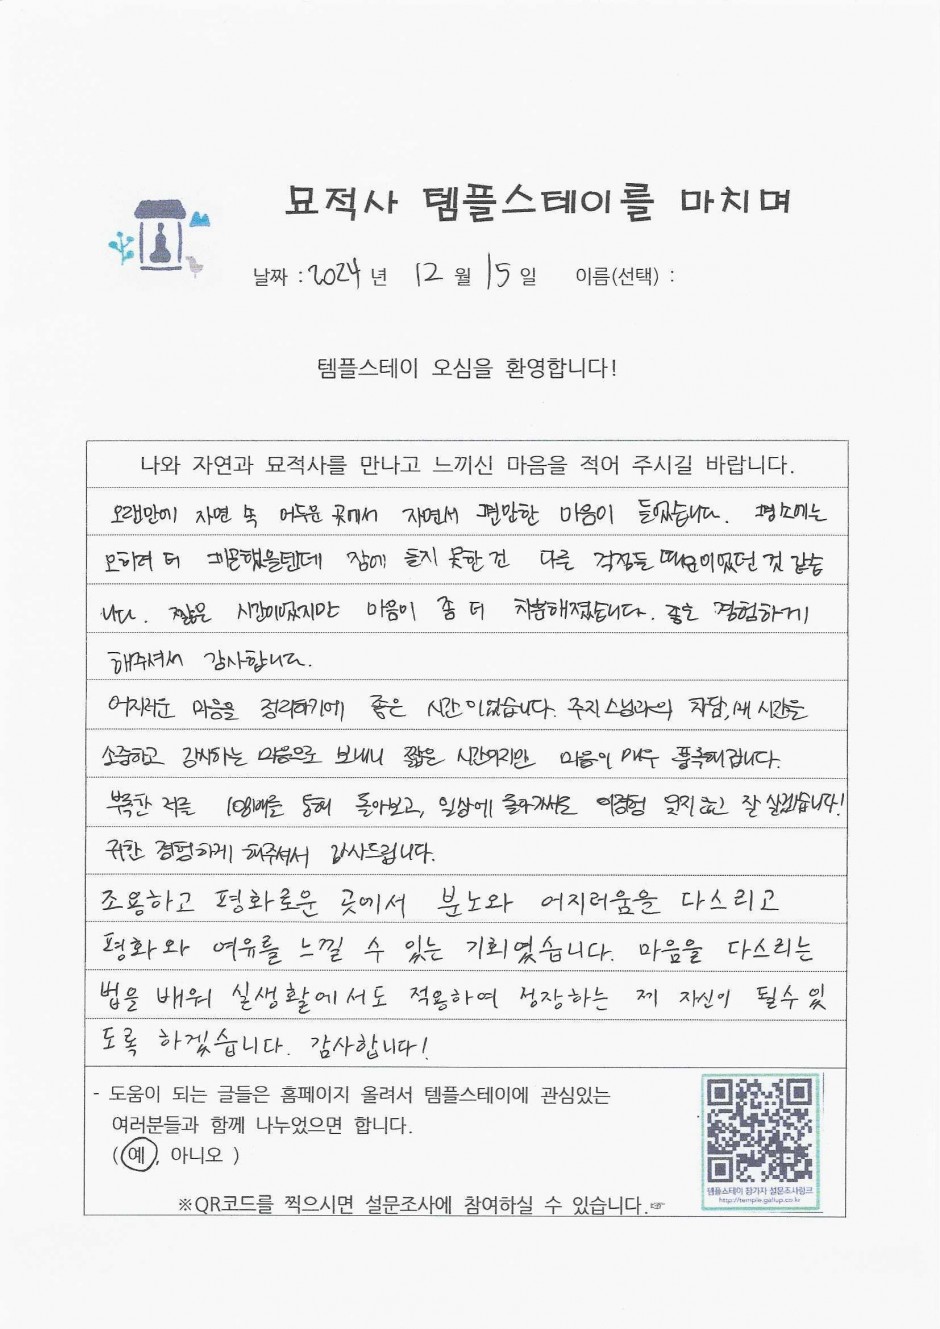 묘적사 템플스테이를 마치며
날짜 : 2024 년 12 월 15 일 이름(선택) :
템플스테이 오심을 환영합니다!
나와 자연과 묘적사를 만나고 느끼신 마음을 적어 주시길 바랍니다.
오랜만에 자연 속 어두운 곳에서 자면서 편안한 마음이 들었습니다. 평소에는
오히려 더 피곤했을텐데 잠에 들지 못한 건 다른 걱정들 때문이었던 것 같습
니다. 짧은 시간이었지만 마음이 좀 더 차분해졌습니다. 좋은 경험하게
해주셔서 감사합니다.
어지러운 마음을 정리하기에 좋은 시간이었습니다. 주지스님과의 차담, 시간을
소중하고 감사하는 마음으로 보내니 짧은 시간이지만 마음이 매우 풍족해집니다.
부족한 저를 108배를 통해 돌아보고, 일상에 돌아가서도 이경험 잊지 않고 잘 살겠습니다!
귀한 경험하게 해주셔서 감사드립니다.
조용하고 평화로운 곳에서 분노와 어지러움을 다스리고
평화와 여유를 느낄 수 있는 기회였습니다. 마음을 다스리는
법을 배워 실생활에서도 적용하여 성장하는 제 자신이 될수 있
도록 하겠습니다. 감사합니다!
- 도움이 되는 글들은 홈페이지 올려서 템플스테이에 관심있는
여러분들과 함께 나누었으면 합니다.
(예, 아니오 )
템플스테이 참가자 설문조사링크
http://temple.gallup.co.kr
※QR코드를 찍으시면 설문조사에 참여하실 수 있습니다.☞